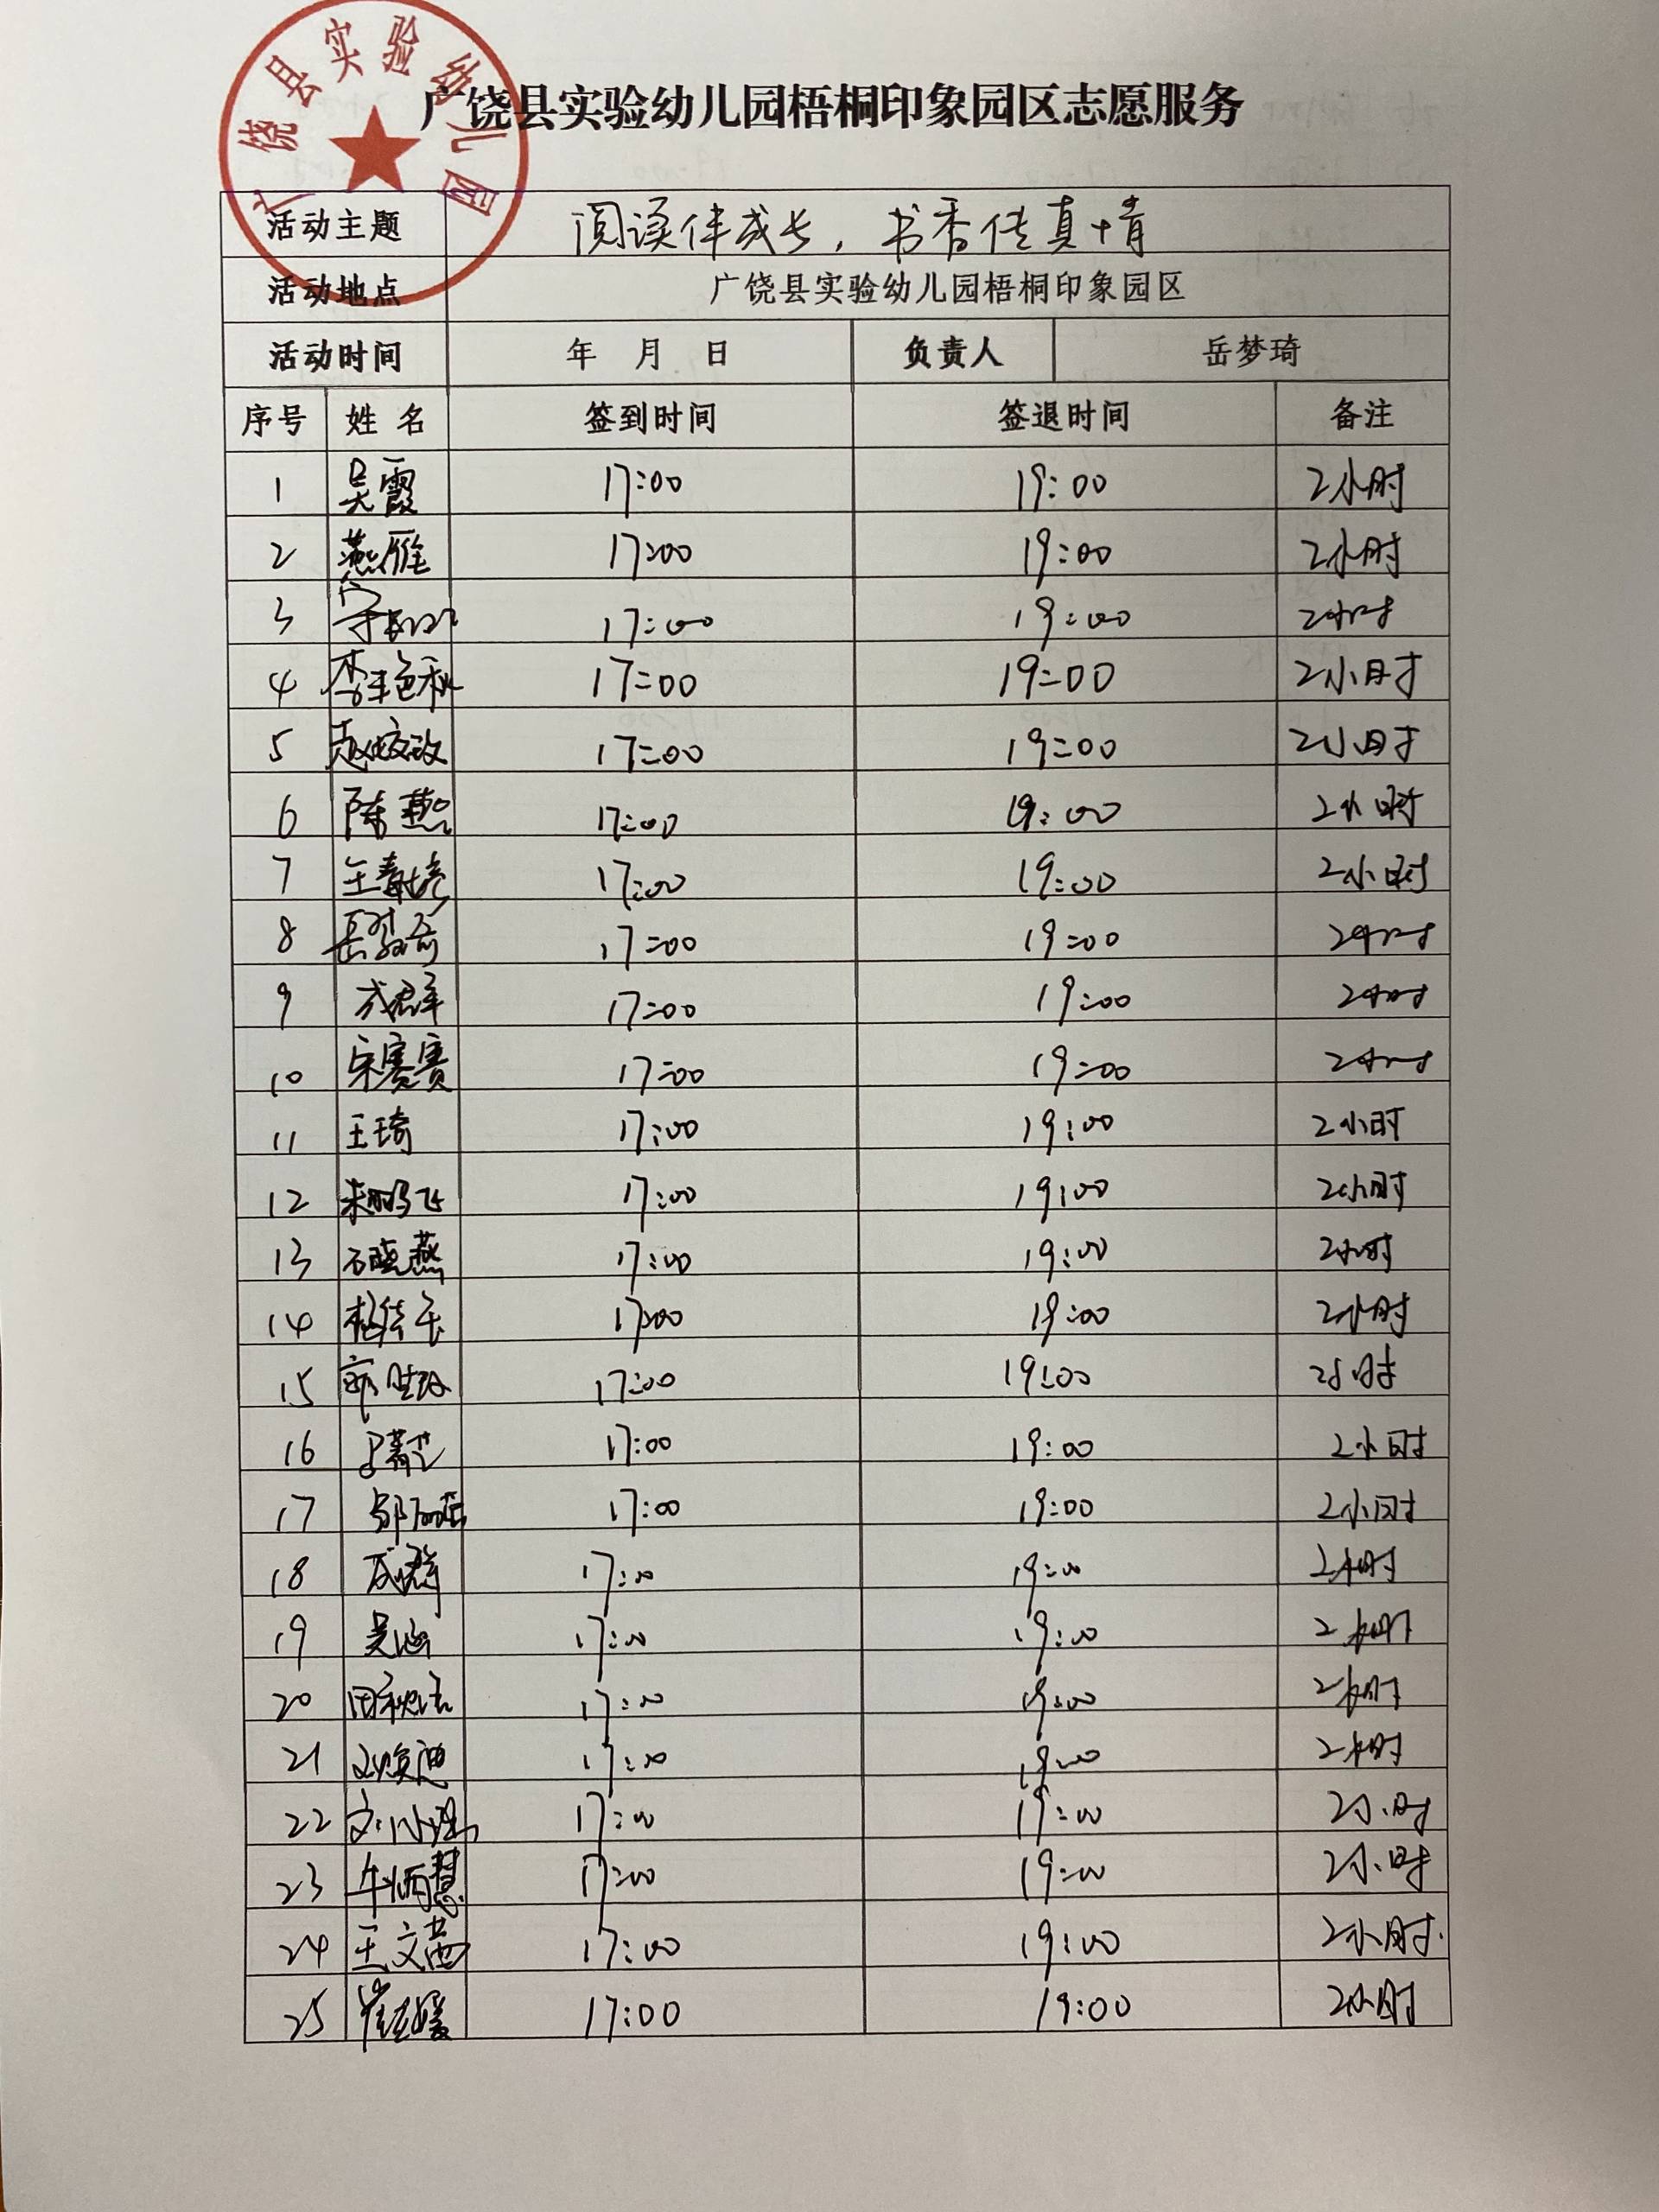 广饶县实验幼儿园
广饶县实验幼儿园梧桐印象园区志愿服务
活动主题 阅读伴成长，书香传真情
活动地点 广饶县实验幼儿园梧桐印象园区
活动时间 年 月 日 负责人 岳梦琦
序号 姓 名 签到时间 签退时间 备注
1 吴霞 17:00 19:00 2小时
2 燕雁 17:00 19:00 2小时
3 17:00 19:00 2小时
4 李艳秋 17:00 19:00 2小时
5 赵姣改 17:00 19:00 2小时
6 陈燕 17:00 19:00 2小时
7 王春婷 17:00 19:00 2小时
8 岳梦奇 17:00 19:00 2小时
9 成君 17:00 19:00 2小时
10 宋赛赛 17:00 19:00 2小时
11 王琦 17:00 19:00 2小时
12 来鹏飞 17:00 19:00 2小时
13 石晓燕 17:00 19:00 2小时
14 17:00 19:00 2小时
15 17:00 19:00 2小时
16 17:00 19:00 2小时
17 17:00 19:00 2小时
18 17:00 19:00 2小时
19 吴 17:00 19:00 2小时
20 田秋 17:00 19:00 2小时
21 刘 迪 17:00 19:00 2小时
22 刘小 17:00 19:00 2小时
23 牛炳慧 17:00 19:00 2小时
24 王文茜 17:00 19:00 2小时
25 崔 媛 17:00 19:00 2小时